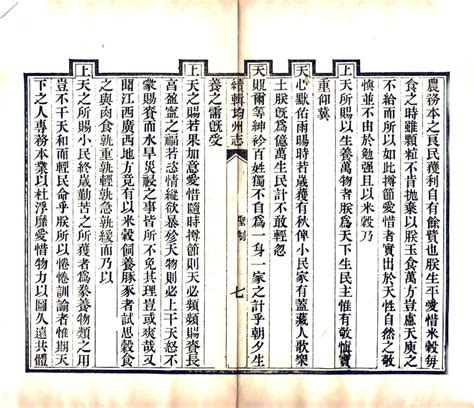 農務本之良民獲利自有餘貲也朕生平愛惜米穀每
食之時雖顆粒不肯拋棄以朕玉食萬方豈慮天庾之
不給而所以如此撙節愛惜者實出於天性自然之敬
慎並不由於勉强且以米穀乃
上天所賜以生養萬物者朕爲天下生民主惟有敬慎寶
重仰冀
天心默佑雨暘時若歲獲有秋俾小民家有蓋藏人歌樂
土朕旣爲億萬生民計不敢輕忽
天貺爾等紳衿百姓獨不自爲一身一家之計乎朝夕生
續輯均州志 聖制 七
養之需旣受
上天之賜若果加意愛惜隨時撙節則天必頻頻賜賚長
富盈寧之福若恣情縱欲暴殄天物則必上干天怒不
蒙賜賚而水旱災祲之事皆所不免其理豈或爽哉朕
聞江西廣西地方竟有以米穀飼養豚豕者試思穀食
之與肉食孰重孰輕孰急孰緩而乃以
上天之所賜小民終歲勤苦之所獲者爲豢養物類之用
豈不干天和而輕民命乎朕所以惓惓訓諭者惟期天
下之人專務本業以杜浮靡愛惜物力以圖久遠共體